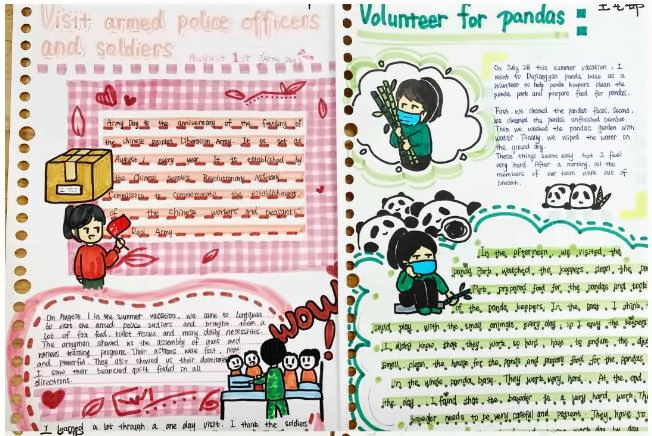 Visit armed police officers
and soldiers
August 1st (Army Day)
Army Day is the anniversary of the founding of
the chinese peoples Liberation Army. It is set as
August 1 every year. It is established by
the Chinese Peoples Revolutionary Military
Commission to commemorate the establishment
of the chinese workers and peasants'
Red Army
On August 1 in the summer vacation, we came to
to visit the armed police soldiers and brought them a
lot of fast food, toilet tissues and many daily necessities.
The armyman showed us the assembly of guns and
various training programs. Their actions were fast, neat
and powerful. They also showed us their dormitories
I saw their beancurd quilt folded in all
directions.
WOW!
I learned a lot through a one day visit. I think the soldiers
Volunteer for pandas
On July 28 this summer vacation, I
went to Dujiangyan panda base as a
volunteer to help panda keepers clean the
panda park and prepare food for pandas.
First, we cleaned the pandas' faces. Second,
we cleaned the pandas unfinished bamboo.
Then we washed the pandas garden with
water. Finally, we wiped the water on
the ground dry.
These things seem easy, but I feel
very hard. After a morning, all the
members of our team were out of
breath.
In the afternoon, we visited the
panda Park, watched the keepers clean the
Park, prepared food for the pandas and
of the panda keepers. In the past, I think,
could play with the small animals every day, so I envy the keepers
I didn't know that they work so hard, have to endure the
smell, clean the house for the panda and prepare food for the pandas
in the whole panda base. They work very hard. At the end
the day, I found that the breeder is a very hard work. The
breeder needs to be very careful and patient. They have to
work day by day